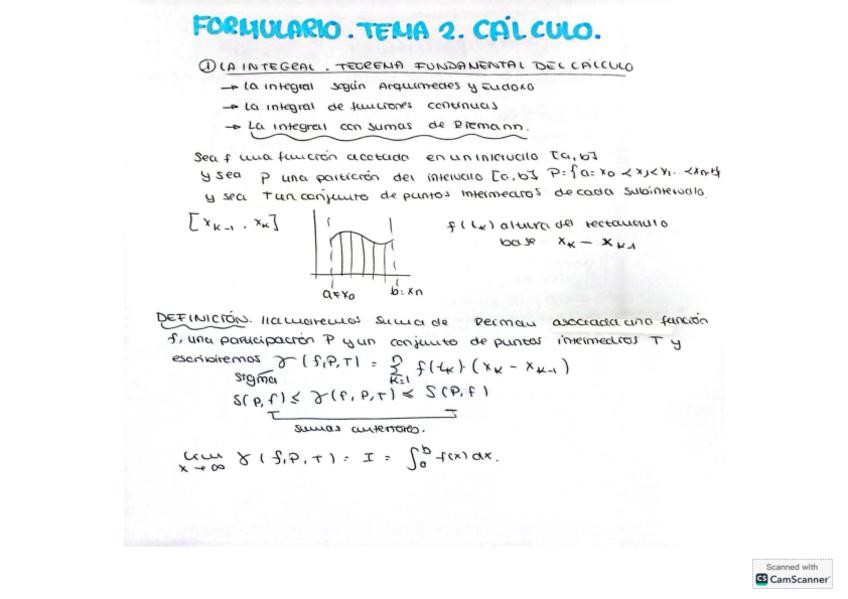 FORMULARIO. TEMA 2. CÁLCULO.
① LA INTEGRAL. TEOREMA FUNDAMENTAL DEL CÁLCULO
→ La integral según Arquímedes y Eudoxo
→ La integral de funciones continuas
→ La integral con sumas de Riemann.
Sea f una función acotada en un intervalo [a,b]
y sea P una partición del intervalo [a,b] P={a=x0 <
y sea T un conjunto de puntos intermedios de cada subintervalo.
[xK-1, xK]
f(tK) altura del rectángulo
base xK - xK-1
a=x0
b=xn
DEFINICIÓN. llamaremos suma de Rerman asociada a una función
f, una participación P y un conjunto de puntos intermedios T y
escribiremos γ(f,P,T) = Σ n K=1 f(tK)(xK - xK-1)
sigma
S(P,f) ≤ γ(f,P,T) ≤ S(P,f)
sumas anteriores.
lim x→∞ γ(f,P,T) = I = ∫ab f(x)dx.
Scanned with
CS CamScanner